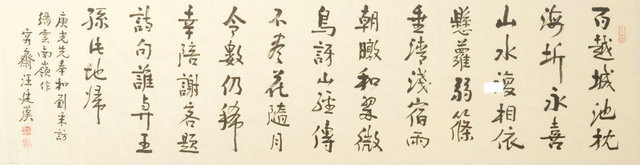 百越城池枕
海圻永喜
山水復相依
懸蘿弱篠
垂清淺宿雨
朝暾和翠微
鳥訝山經傳
不盡花隨月
令數仍稀
幸陪謝客題
詩句誰與王
孫此地歸
庚光先奉和劉采訪
縉雲南嶺作
齋汪